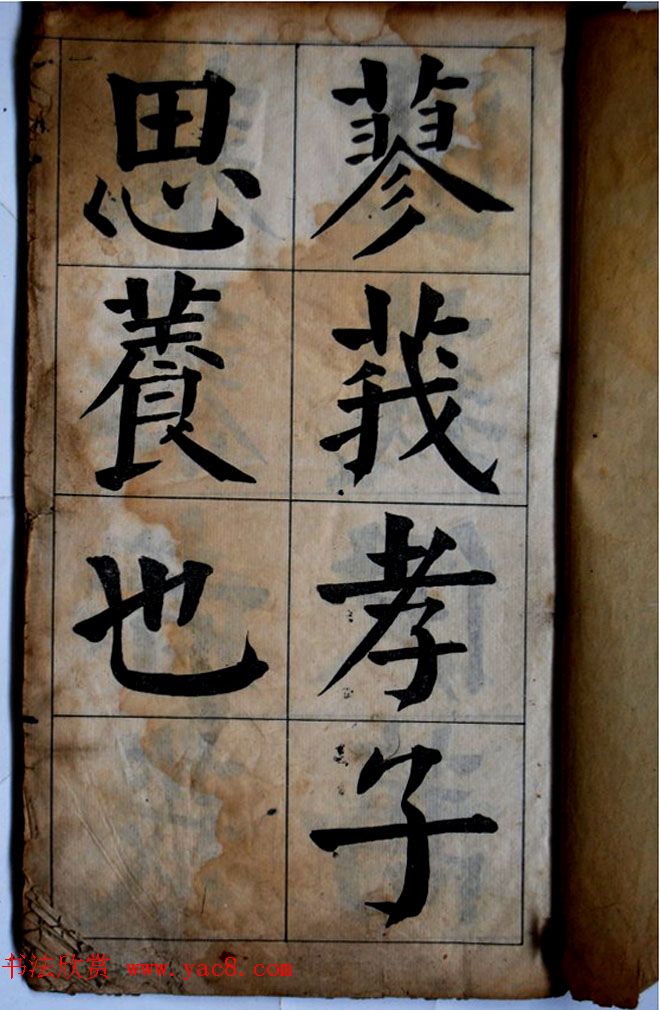 蓼莪孝子
思養也
书法欣赏 www.yac8.com